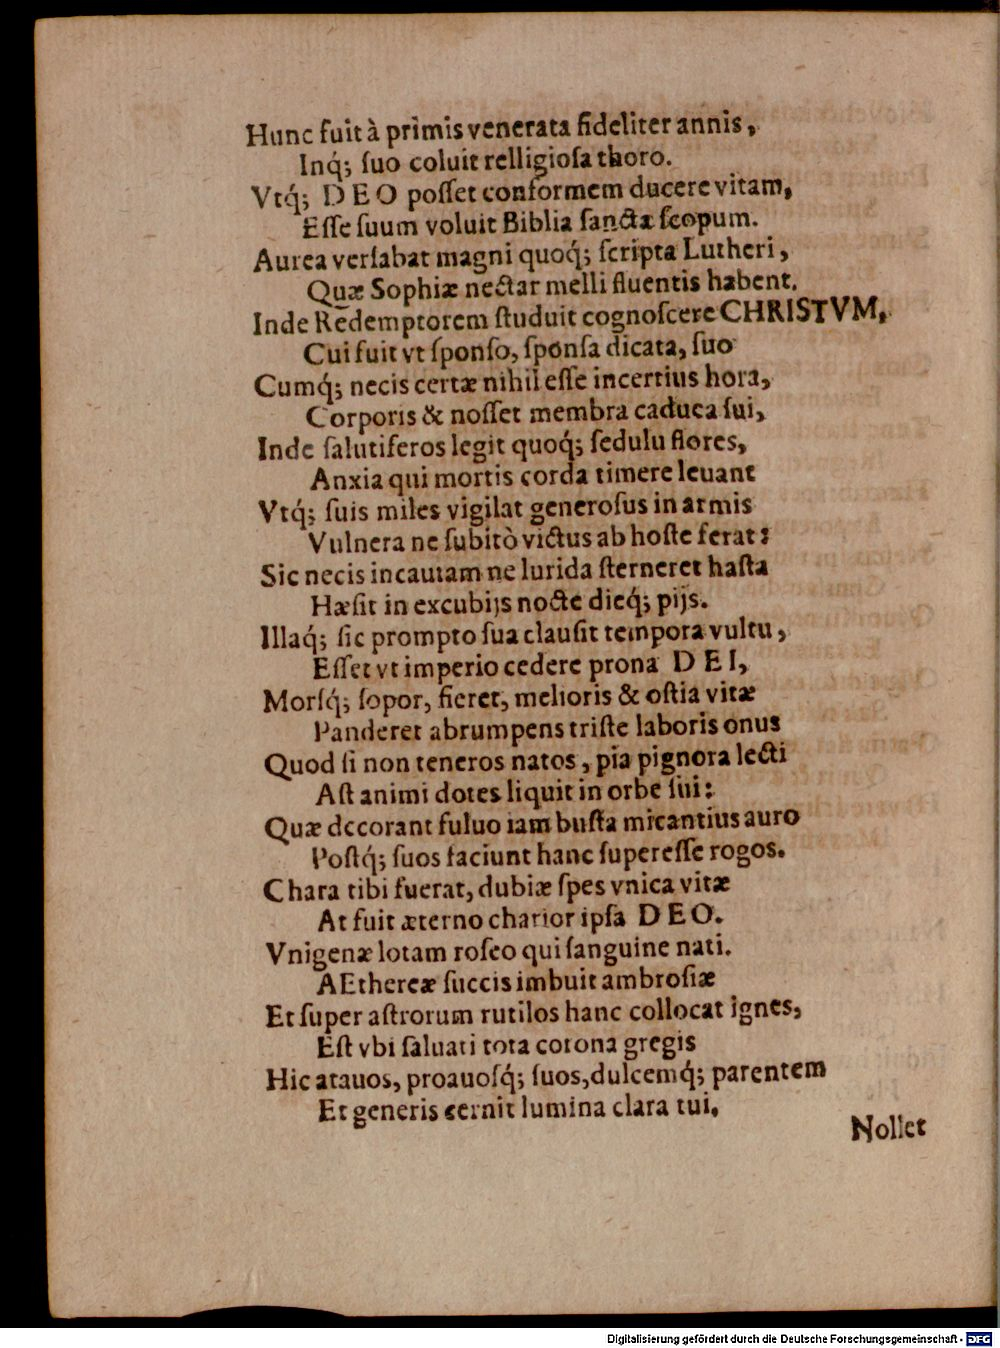 Hunc fuit à primis venerata fideliter annis,
Inq́; ſuo coluit relligioſa thoro.
Vtq́; DEO poſſet conformem ducere vitam,
Eſſe ſuum voluit Biblia ſancta ſcopum.
Aurea verſabat magni quoq́; ſcripta Lutheri,
Quæ Sophiæ nectar melli fluentis habent.
Inde Redemptorem ſtuduit cognoſcere CHRISTVM,
Cui fuit vt ſponſo, ſponſa dicata, ſuo
Cumq́; necis certæ nihil eſſe incertius hora,
Corporis & noſſet membra caduca ſui,
Inde ſalutiferos legit quoq́; ſedulu flores,
Anxia qui mortis corda timere leuant
Vtq́; ſuis miles vigilat generoſus in armis
Vulnera ne ſubitò victus ab hoſte ferat:
Sic necis incautam ne lurida ſterneret haſta
Hæſit in excubijs nocte dieq́; pijs.
Illaq́; ſic prompto ſua clauſit tempora vultu,
Eſſet vt imperio cedere prona DEI,
Morſq́; ſopor, fieret, melioris & oſtia vitæ
Panderet abrumpens triſte laboris onus
Quod ſi non teneros natos, pia pignora lecti
Aſt animi dotes liquit in orbe ſui:
Quæ decorant fuluo iam buſta micantius auro
Poſtq́; ſuos faciunt hanc ſupereſſe rogos.
Chara tibi fuerat, dubiæ ſpes vnica vitæ
At fuit æterno charior ipſa DEO.
Vnigenæ lotam roſeo qui ſanguine nati.
AEthereæ ſuccis imbuit ambroſiæ
Et ſuper aſtrorum rutilos hanc collocat ignes,
Eſt vbi ſaluati tota corona gregis
Hic atauos, proauoſq́; ſuos, dulcemq́; parentem
Et generis cernit lumina clara tui.
Nollet
Digitalisierung gefördert durch die Deutsche Forschungsgemeinschaft - DFG